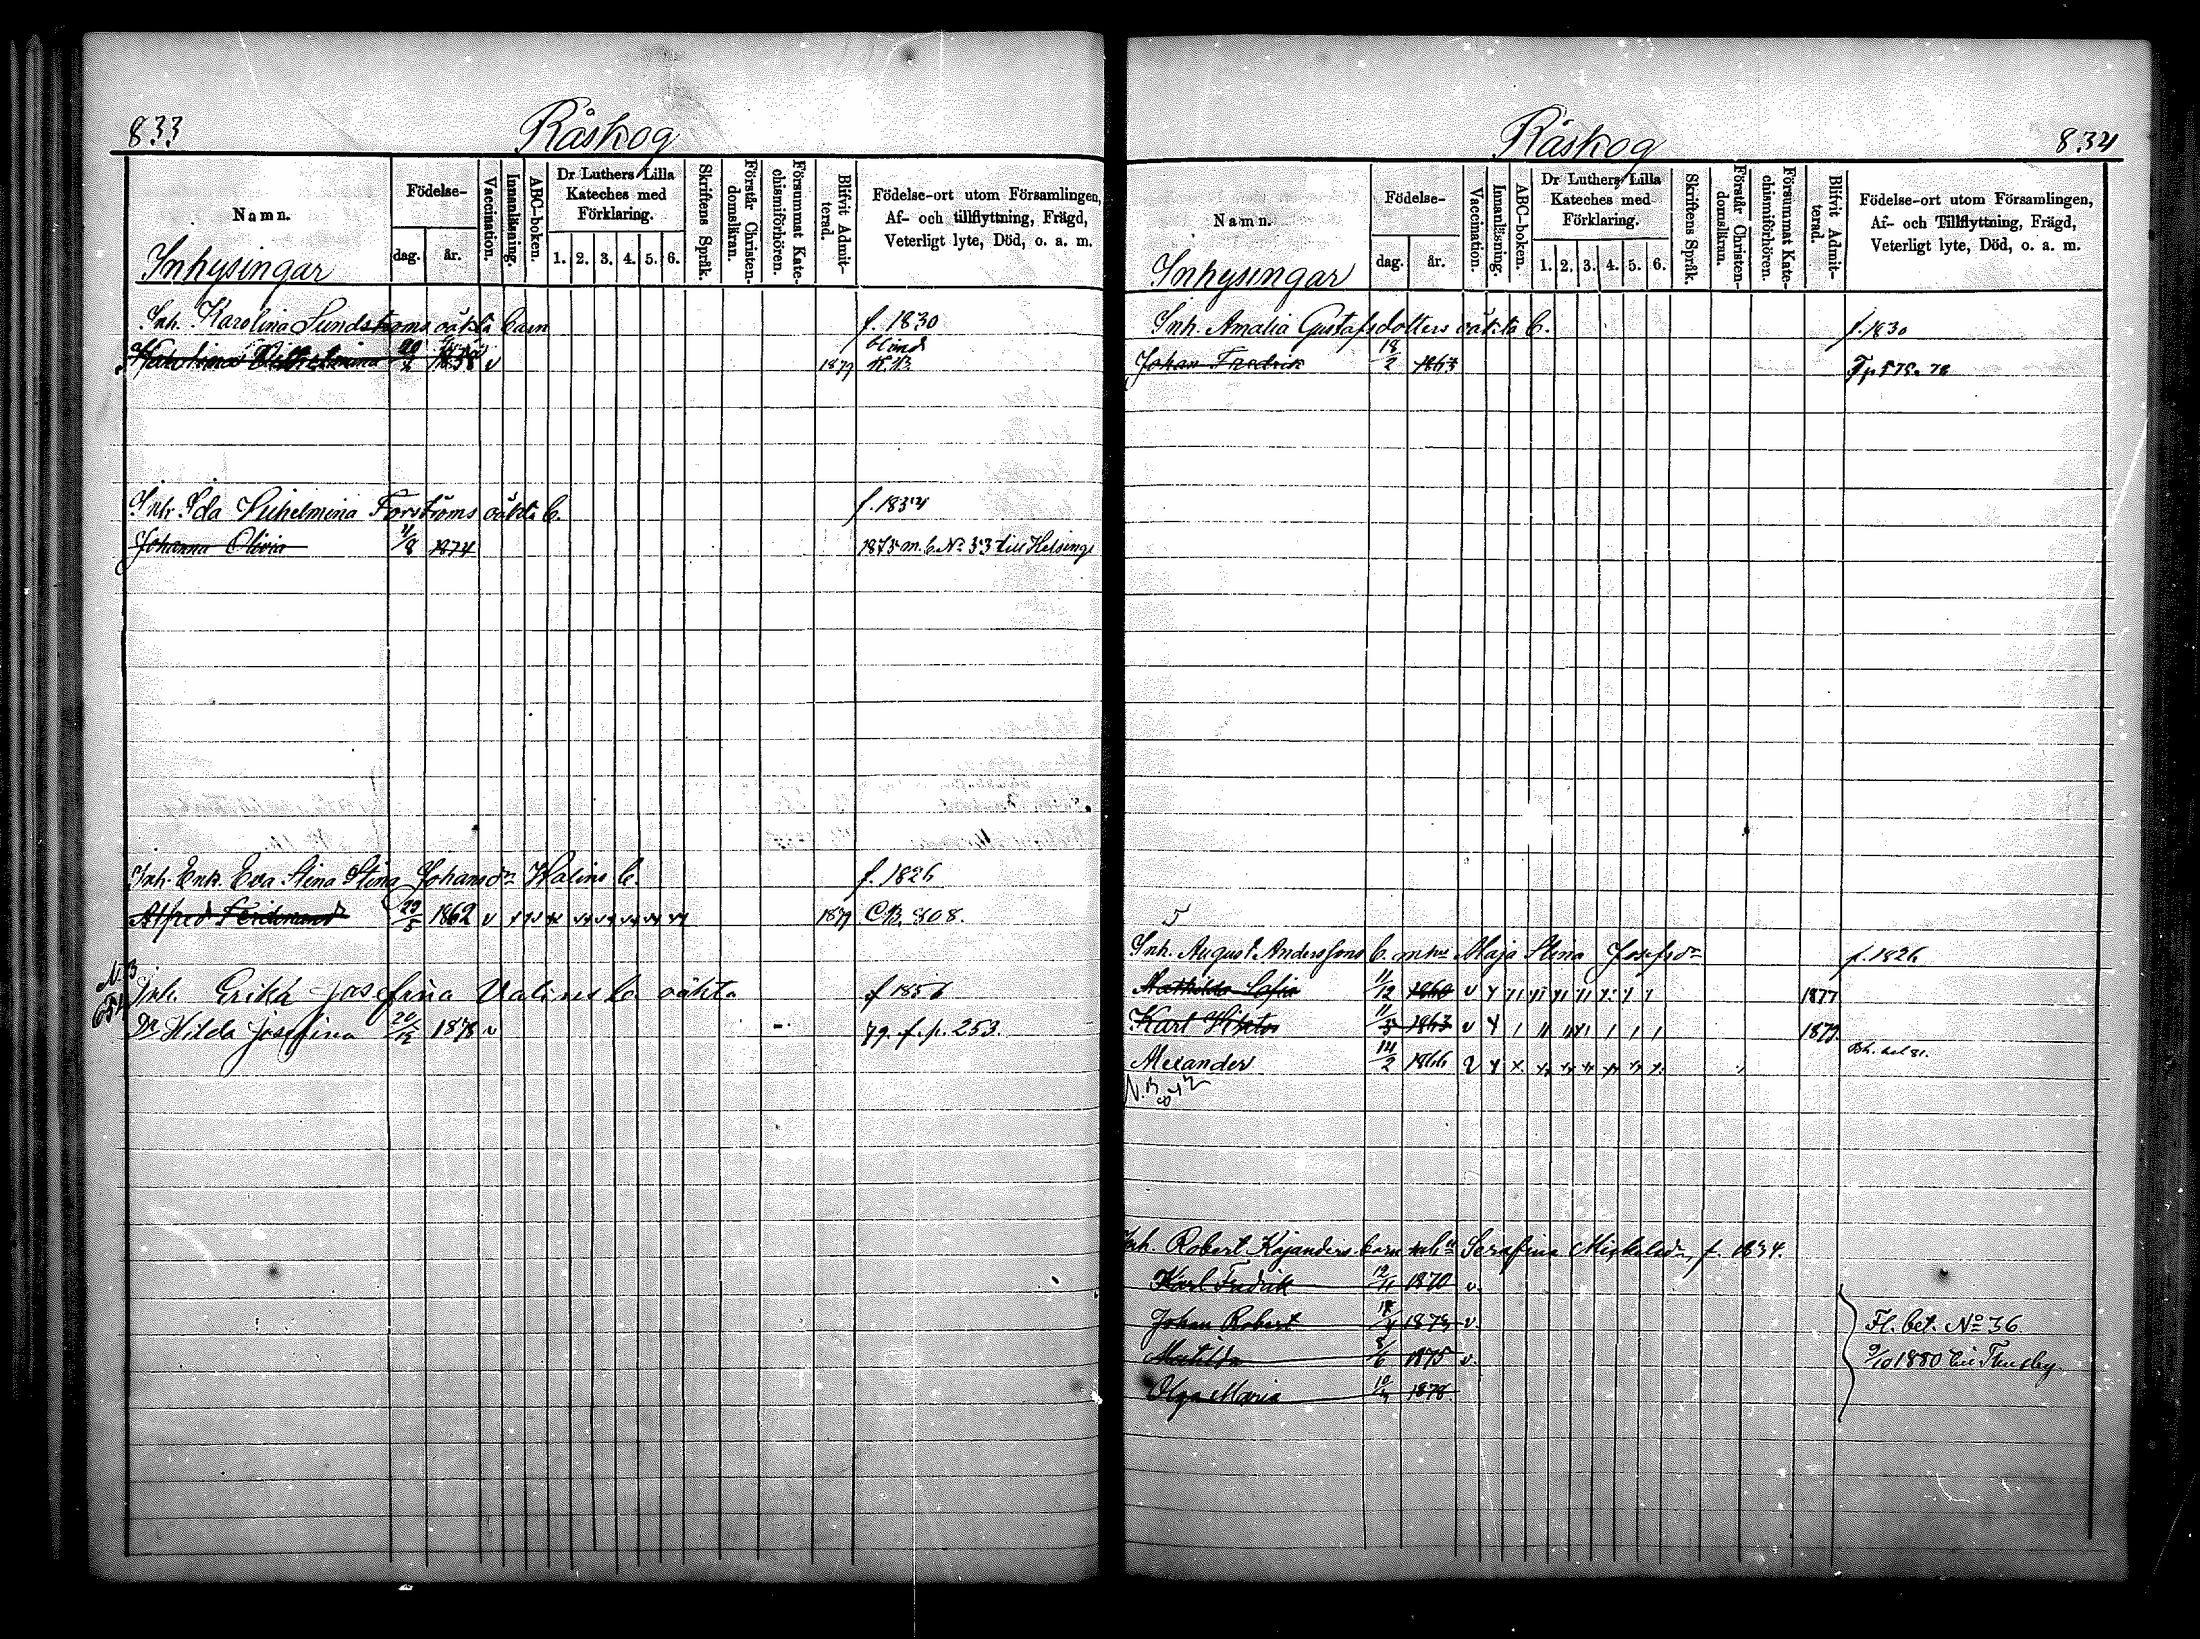 833
Råskog
Namn.
Födelse-
dag.
år.
Vaccination.
Innanläsning.
ABC-boken.
Dr Luthers Lilla
Kateches med
Förklaring.
1. 2. 3. 4. 5. 6.
Skriftens Språk.
Förstår Christen-
domsläran.
Försummat Kate-
chismiförhören.
Blifvit Admit-
terad.
Födelse-ort utom Församlingen,
Af- och tillflyttning, Frägd,
Veterligt lyte, Död, o. a. m.
Inhysingar
Inh. Karolina Sundströms oäkta barn f. 1830
blind
Wilhelmina v 1879
Inh. Ida Vilhelmina Forströms oäkta b. f. 1834
Johanna Olivia 1874 1875 m. b. No 33 till Helsinge
Inh. Enk. Eva Stina Stina Johansdr Walins b. f. 1826
Alfred Ferdinand 29/5 1862 v 1879 CB. 808.
Inh. Erika Josefina Valins b. oäkta f 1851
Dr Hilda Josefina 1878 v 79. f. p. 253.
834
Råskog
Namn.
Födelse-
dag.
år.
Vaccination.
Innanläsning.
ABC-boken.
Dr Luthers Lilla
Kateches med
Förklaring.
1. 2. 3. 4. 5. 6.
Skriftens Språk.
Förstår Christen-
domsläran.
Försummat Kate-
chismiförhören.
Blifvit Admit-
terad.
Födelse-ort utom Församlingen,
Af- och Tillflyttning, Frägd,
Veterligt lyte, Död, o. a. m.
Inhysingar
Inh. Amalia Gustafsdotters oäkta b. f. 1830
Johan Fredrik 18/2 1863
5
Inh. August Anderssons b. Maja Stina Josefsdr f. 1826
Mathilda Sofia 11/12 1860 v 1877
Karl Viktor 1863 v 1879
Alexander 14/2 1866 v
N.B.
Inh. Robert Kajanders barn Serafina Mickelsdr f. 1834.
Karl Fredrik 12/11 1870 v.
Johan Robert 1873 v.
Matilda 8/6 1875 v.
Olga Maria 1878
Fl. bet. No 36
9/10 1880 till Thusby